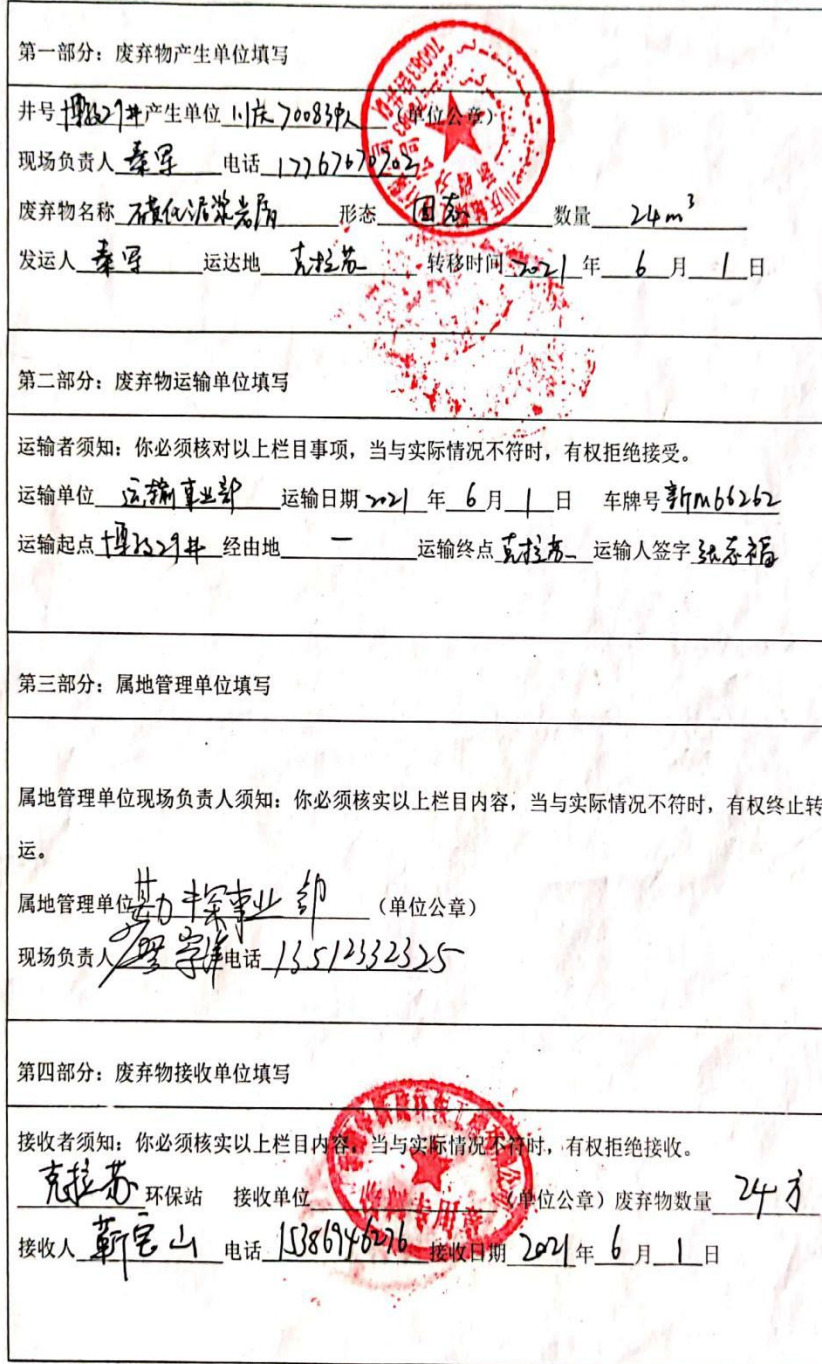 第一部分：废弃物产生单位填写
井号 博孜29井 产生单位 川庆70083队 （单位公章）
现场负责人 秦军 电话 17767670702
废弃物名称 磺化泥浆岩屑 形态 固态 数量 24m³
发运人 秦军 运达地 克拉苏 转移时间 2021 年 6 月 1 日
第二部分：废弃物运输单位填写
运输者须知：你必须核对以上栏目事项，当与实际情况不符时，有权拒绝接受。
运输单位 运输事业部 运输日期 2021 年 6 月 1 日 车牌号 新M66262
运输起点 博孜29井 经由地 一 运输终点 克拉苏 运输人签字 张志福
第三部分：属地管理单位填写
属地管理单位现场负责人须知：你必须核实以上栏目内容，当与实际情况不符时，有权终止转
运。
属地管理单位 勘探事业部 （单位公章）
现场负责人 电话 13512332325
第四部分：废弃物接收单位填写
接收者须知：你必须核实以上栏目内容，当与实际情况不符时，有权拒绝接收。
克拉苏 环保站 接收单位 （单位公章）废弃物数量 24方
接收人 靳宝山 电话 15386946276 接收日期 2021 年 6 月 1 日